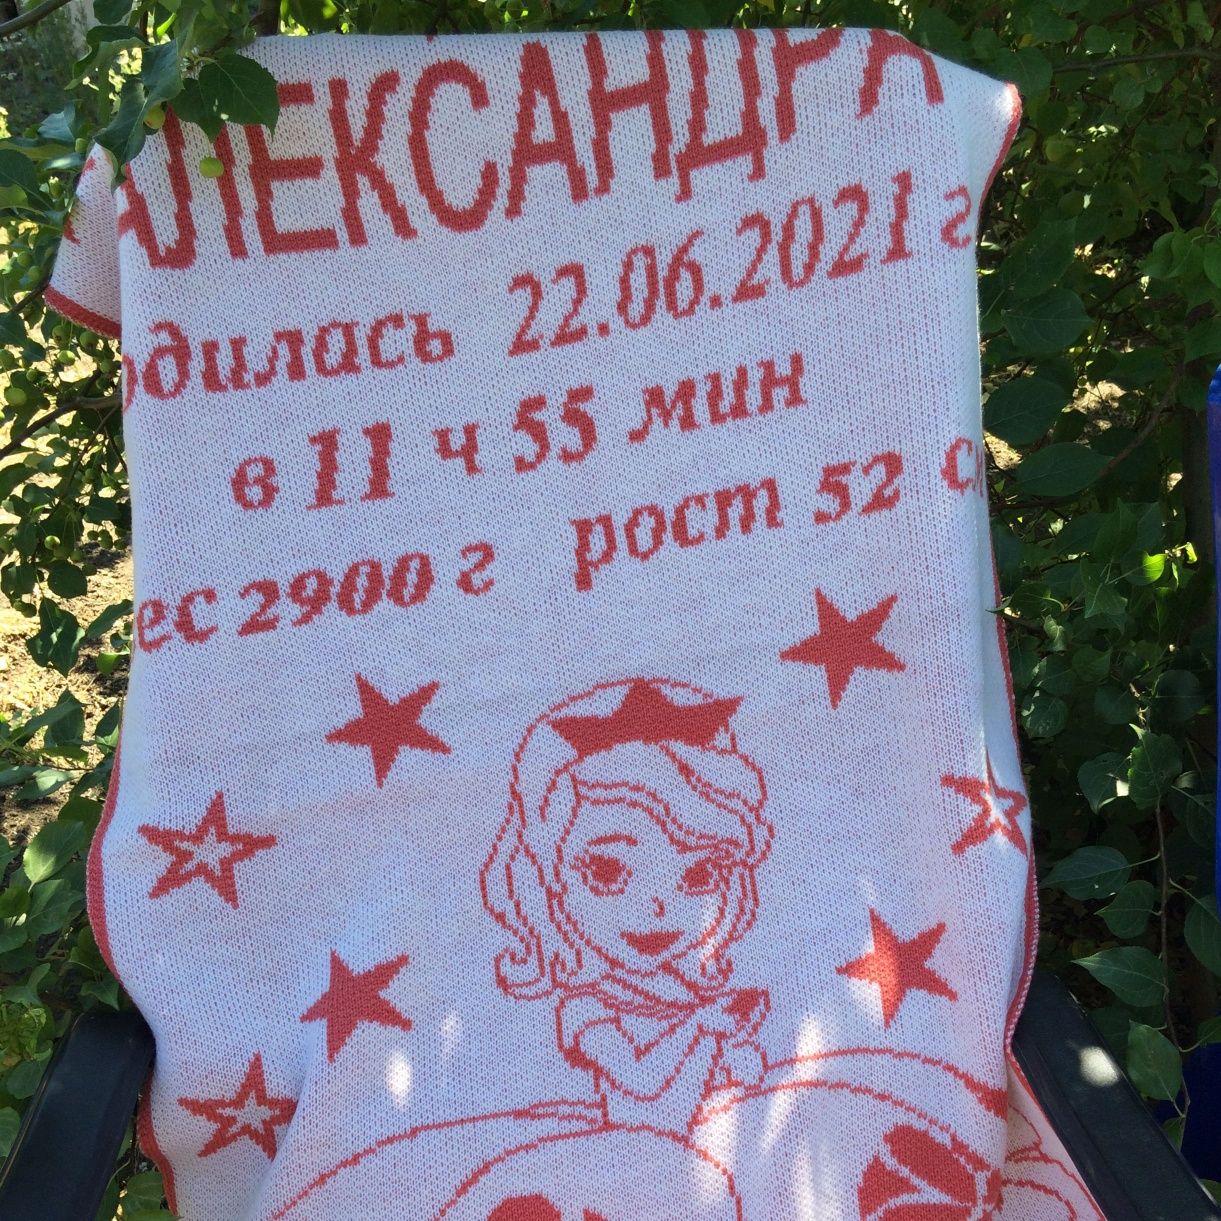 АЛЕКСАНДРА
одилась 22.06.2021 г
в 11 ч 55 мин
ес 2900 г рост 52 см